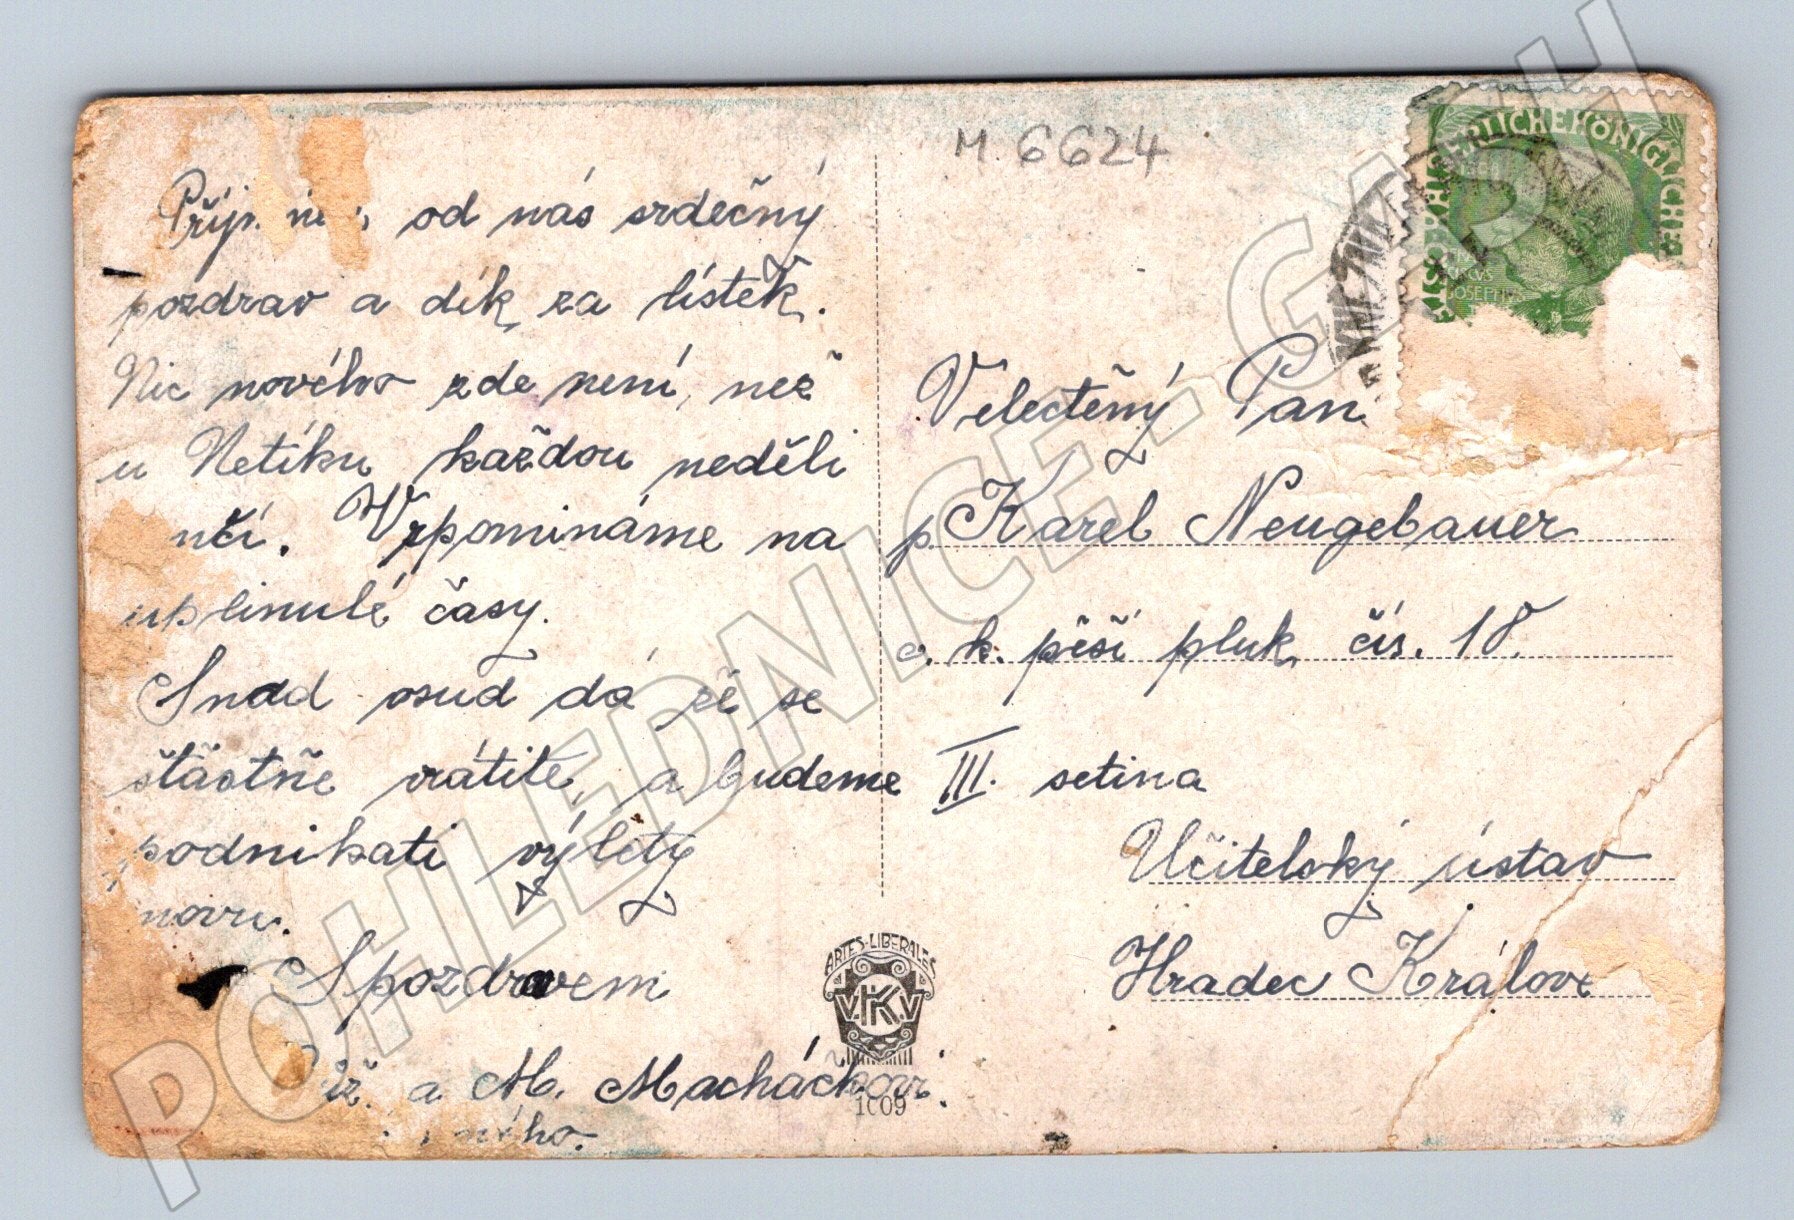 M. 6624
od nás srdečný
pozdrav a dík za lístek.
Nic nového zde není, než
u Netíku každou neděli
Vzpomínáme na
uplinulé časy.
Snad osud dá že se
štastně vrátíte, a budeme
podnikati výlety
Spozdravem
a M. Macháčkovi.
Velectěný Pan
p. Karel Neugebauer
c. k. pěší pluk čís. 18.
III. setina
Učitelský ústav
Hradec Králove
ARTES-LIBERALES
V.K.K.V
1009
KAISERLICHEKÖNIGLICHE
POHLEDNICE-GASH